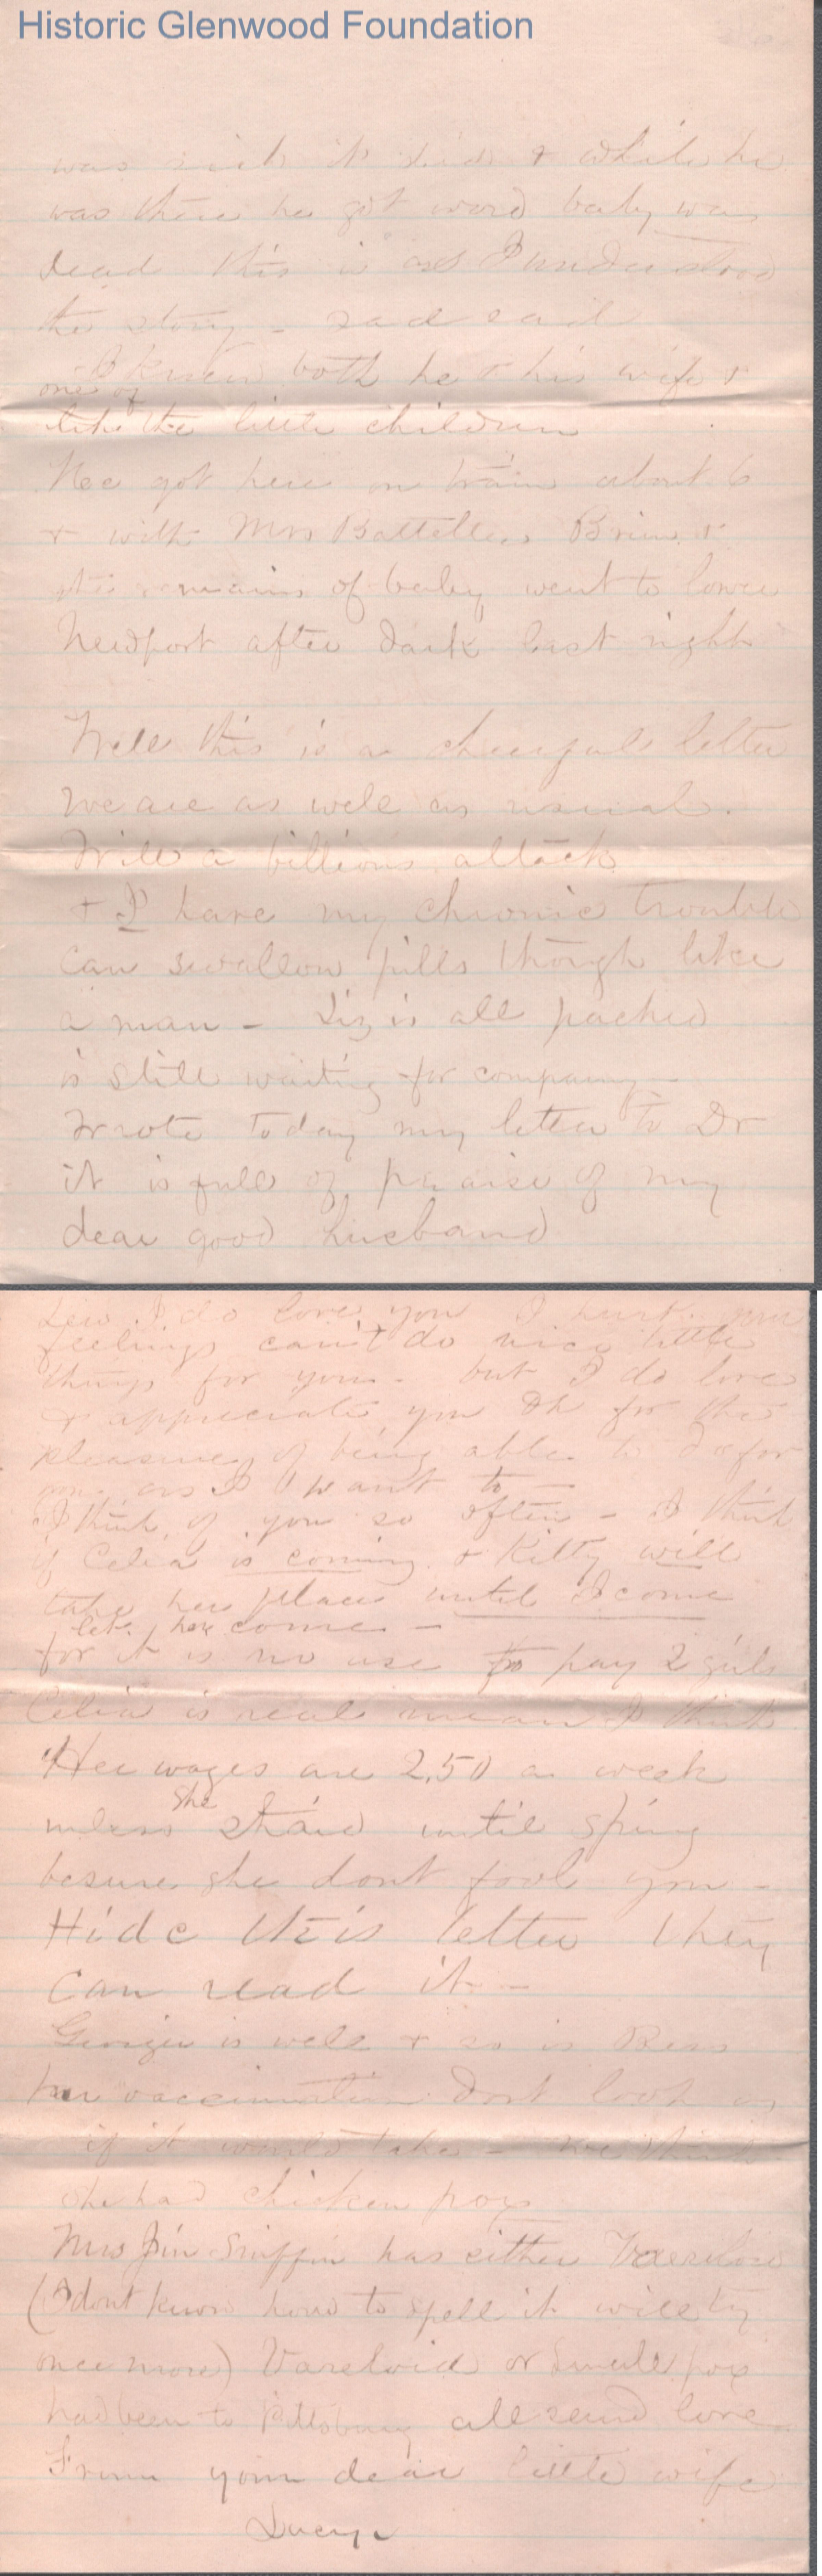 Historic Glenwood Foundation
was sick it died & while he
was there he got word baby was
dead this is as I understood
the story - sad sad
I knew both he & his wife &
one of
the little children
Nee got here on train about 6
& with Mrs Battelle, Brim &
the remains of baby went to lower
Newport after dark last night
Well this is a cheerful letter
We are as well as usual.
Will a billious attack
& I have my chronic trouble
can swallow pills though like
a man - Liz is all packed
is still waiting for company -
Wrote today my letter to Dr
it is full of praise of my
dear good husband
Lew I do love you I hurt your
feelings can't do nice little
things for you - but I do love
& appreciate you Oh for the
pleasure of being able to do for
you as I want to -
I think of you so often - I think
if Celia is coming & Kitty will
take her place until I come
let her come -
for it is no use to pay 2 girls
Celia is real mean I think
Her wages are 2.50 a week
unless she staid until spring
besure she dont fool you -
Hide this letter they
can read it -
Georgie is well & so is Bess
her vaccination dont look as
if it would take - we think
she had chicken pox
Mrs Jim Sniffin has either
(I dont know how to spell it will try
once more) Vareloid or Small pox
had been to Pittsburg all send love
From your dear little wife
Lucy